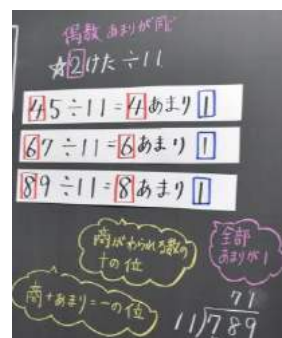 偶数 あまりが同じ
☆2けた÷11
45÷11=4あまり1
67÷11=6あまり1
89÷11=8あまり1
商がわられる数の
十の位
全部
あまりが1
商+あまり=一の位
71
11)789